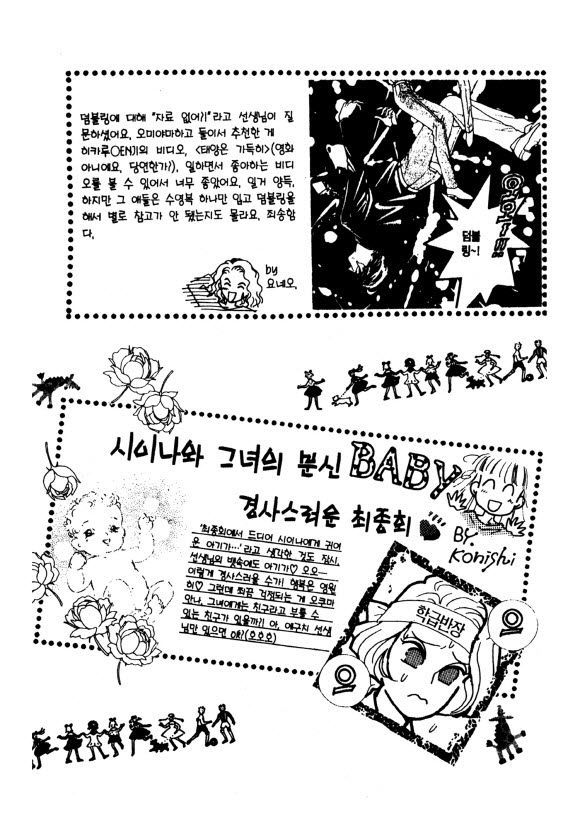 덤블링에 대해 "자료 없어?!"라고 선생님이 질
문하셨어요. 오미야마하고 둘이서 추천한 게
히카루○EN)의 비디오, <태양은 가득히>(영화
아니에요, 당연한가?), 일하면서 좋아하는 비디
오를 볼 수 있어서 너무 좋았어요. 일거 양득,
하지만 그 애들은 수영복 하나만 입고 덤블링을
해서 별로 참고가 안 됐는지도 몰라요. 죄송함
다.
by
요네오.
덤블
링~!
시이나와 그녀의 분신 BABY
경사스러운 최종회
BY.
Konishi
'최종회에서 드디어 시이나에게 귀여
운 아기가…'라고 생각한 것도 잠시,
선생님의 뱃속에도 아기가♡ 오오—
이렇게 경사스러울 수가! 행복은 영원
히♡ 그런데 최끈 걱정되는 게 오쿠마
양나. 그녀에게는 친구라고 부를 수
있는 친구가 있을까?! 아, 야구치 선생
님만 있으면 돼?(오호호)
학급반장
응
응